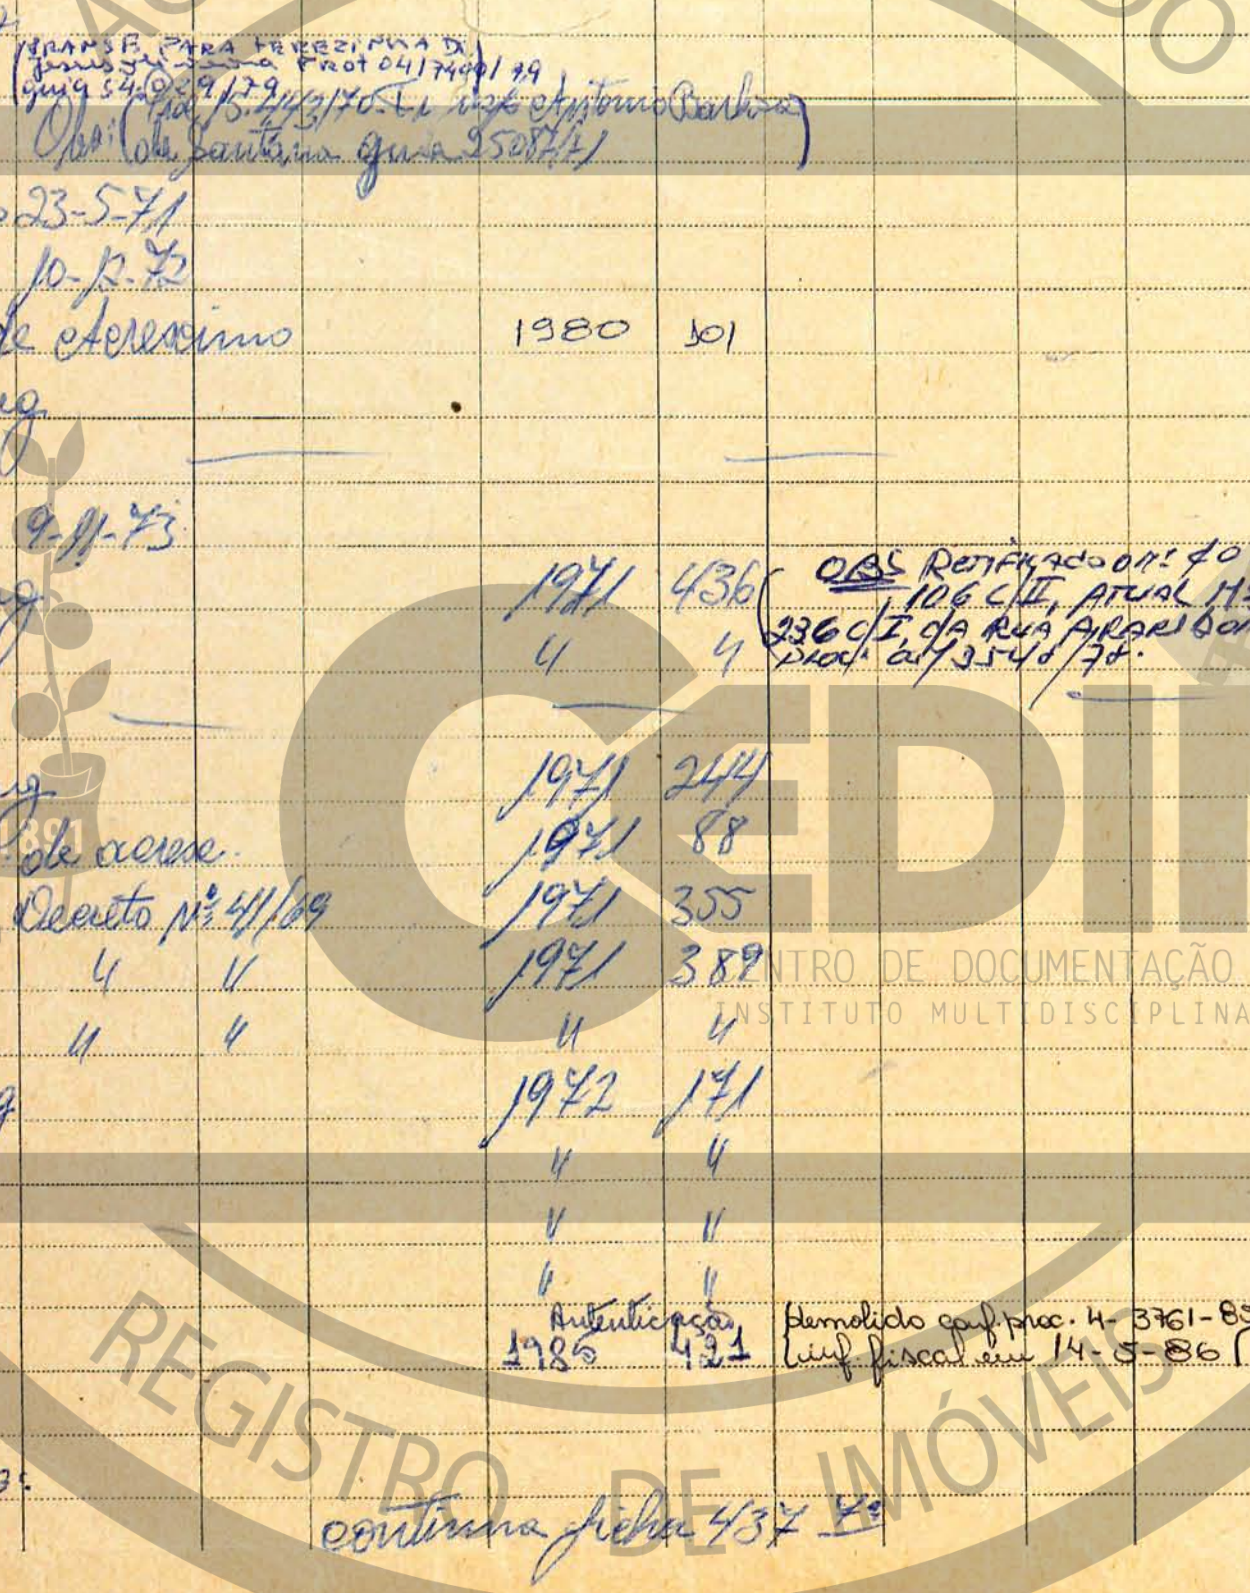 TRANSF. PARA TEREZINHA DE
Jesus PROT 04/7490/79
guia 54.029/79
Obs: (15.443/70 Antonio Barbosa)
de Santana guia 25087/71
23-5-71
10-12-72
de Acrescimo 1980 101
9-11-73
1971 436 ( OBS Retificado o nº 40
" " 106 C/II, ATUAL
236 C/I, DA RUA
Proc.
1971 244
de acresc. 1971 88
Decreto Nº 41/69 1971 355
" " 1971 389
" " " "
1972 171
" "
" "
" "
Autenticação
1985 421
demolido conf. proc. 4-3761-85
inf. fiscal em 14-5-86
continua ficha 437
1891
CEDI
CENTRO DE DOCUMENTAÇÃO
INSTITUTO MULTIDISCIPLINA
REGISTRO DE IMÓVEIS